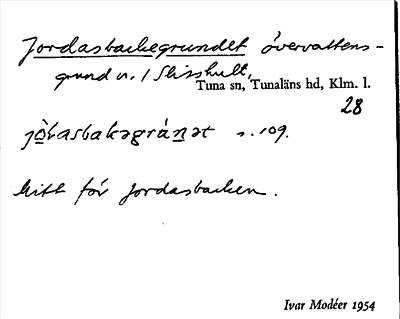 Jordasbackegrundet övervattens-
grund n. / Slisshult,
Tuna sn, Tunaläns hd, Klm. l.
28
jòʀasbakəgránət s. 109.
mitt för Jordasbacken.
Ivar Modéer 1954